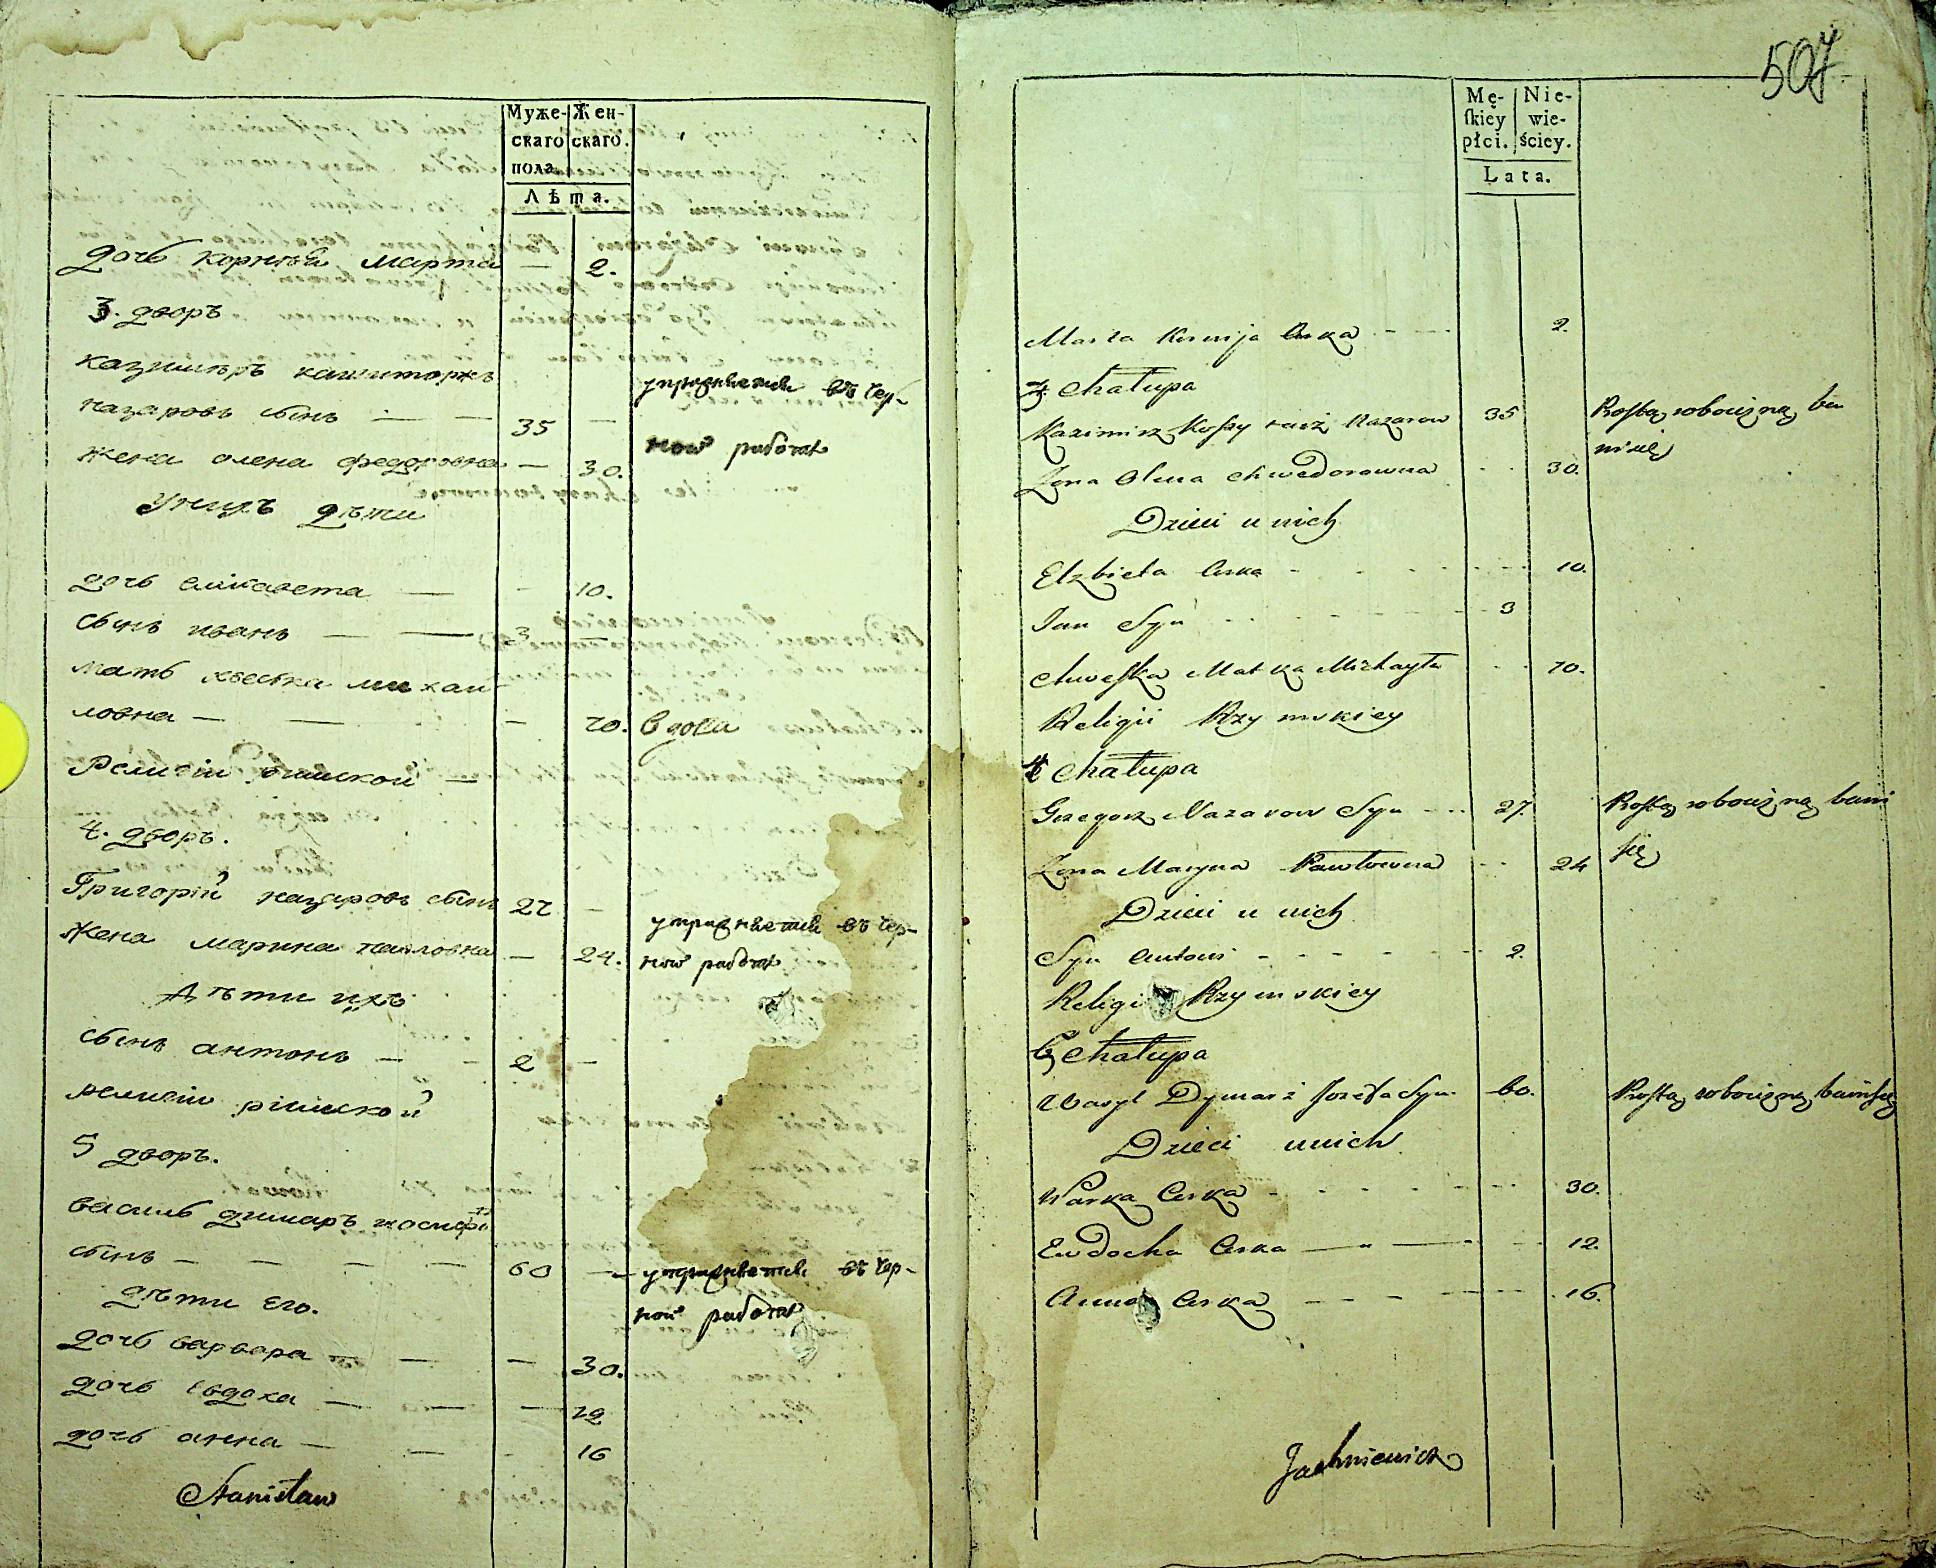 Муже- Жен-
скаго скаго.
пола
Лѣта.
дочь корнѣя марта — 2.
3. дворъ
казимѣръ
назаровъ сынъ — — 35 —
упражняется въ чер-
ной работѣ
жена олена федоровна — 30.
у нихъ дѣти
дочь елисавета — - 10.
сынъ иванъ — — 3 —
мать хвеська михай-
ловна — — - 70. вдова
Религіи римской —
4. дворъ.
Григорій назаровъ сынъ 27 -
упражняется въ чер-
ной работѣ
жена марина павловна — 24.
дѣти ихъ
сынъ антонъ — - 2 —
религіи римской
5 дворъ.
василь дымаръ иосифа
сынъ — — — — 60 —
упражняется въ чер-
ной работѣ
дѣти его.
дочь варвара — — — 30.
дочь евдоха — — — 12
дочь анна — — - 16
Stanisław
507.
Mę- Nie-
skiey wie-
płci. ściey.
Lata.
Marta Kornija Curka - - 2.
3 Chałupa
Kazimirz Nazarow 35 Prostą robocizną ba
wi się
Żona Olena Chwedorowna - - 30.
Dzieci u nich
Elzbieta Curka - - - - 10.
Jan Syn - - - - 3
Chweska Matka Michayła - - 70.
Religii Rzymskiey
4 Chałupa
Grzegorz Nazarow Syn - - 27. Prostą robocizną bawi
się
Żona Maryna Pawłowna - - 24
Dzieci u nich
Syn Antoni - - - - 2.
Religii Rzymskiey
5 Chałupa
Wasyl Dymarz Jozefa Syn 60. Prostą robocizną bawi się
Dzieci u nich
Warka Curka - - - - 30.
Ewdocha Curka — " — - - 12.
Anna Curka - - - - 16.
Jachniewicz